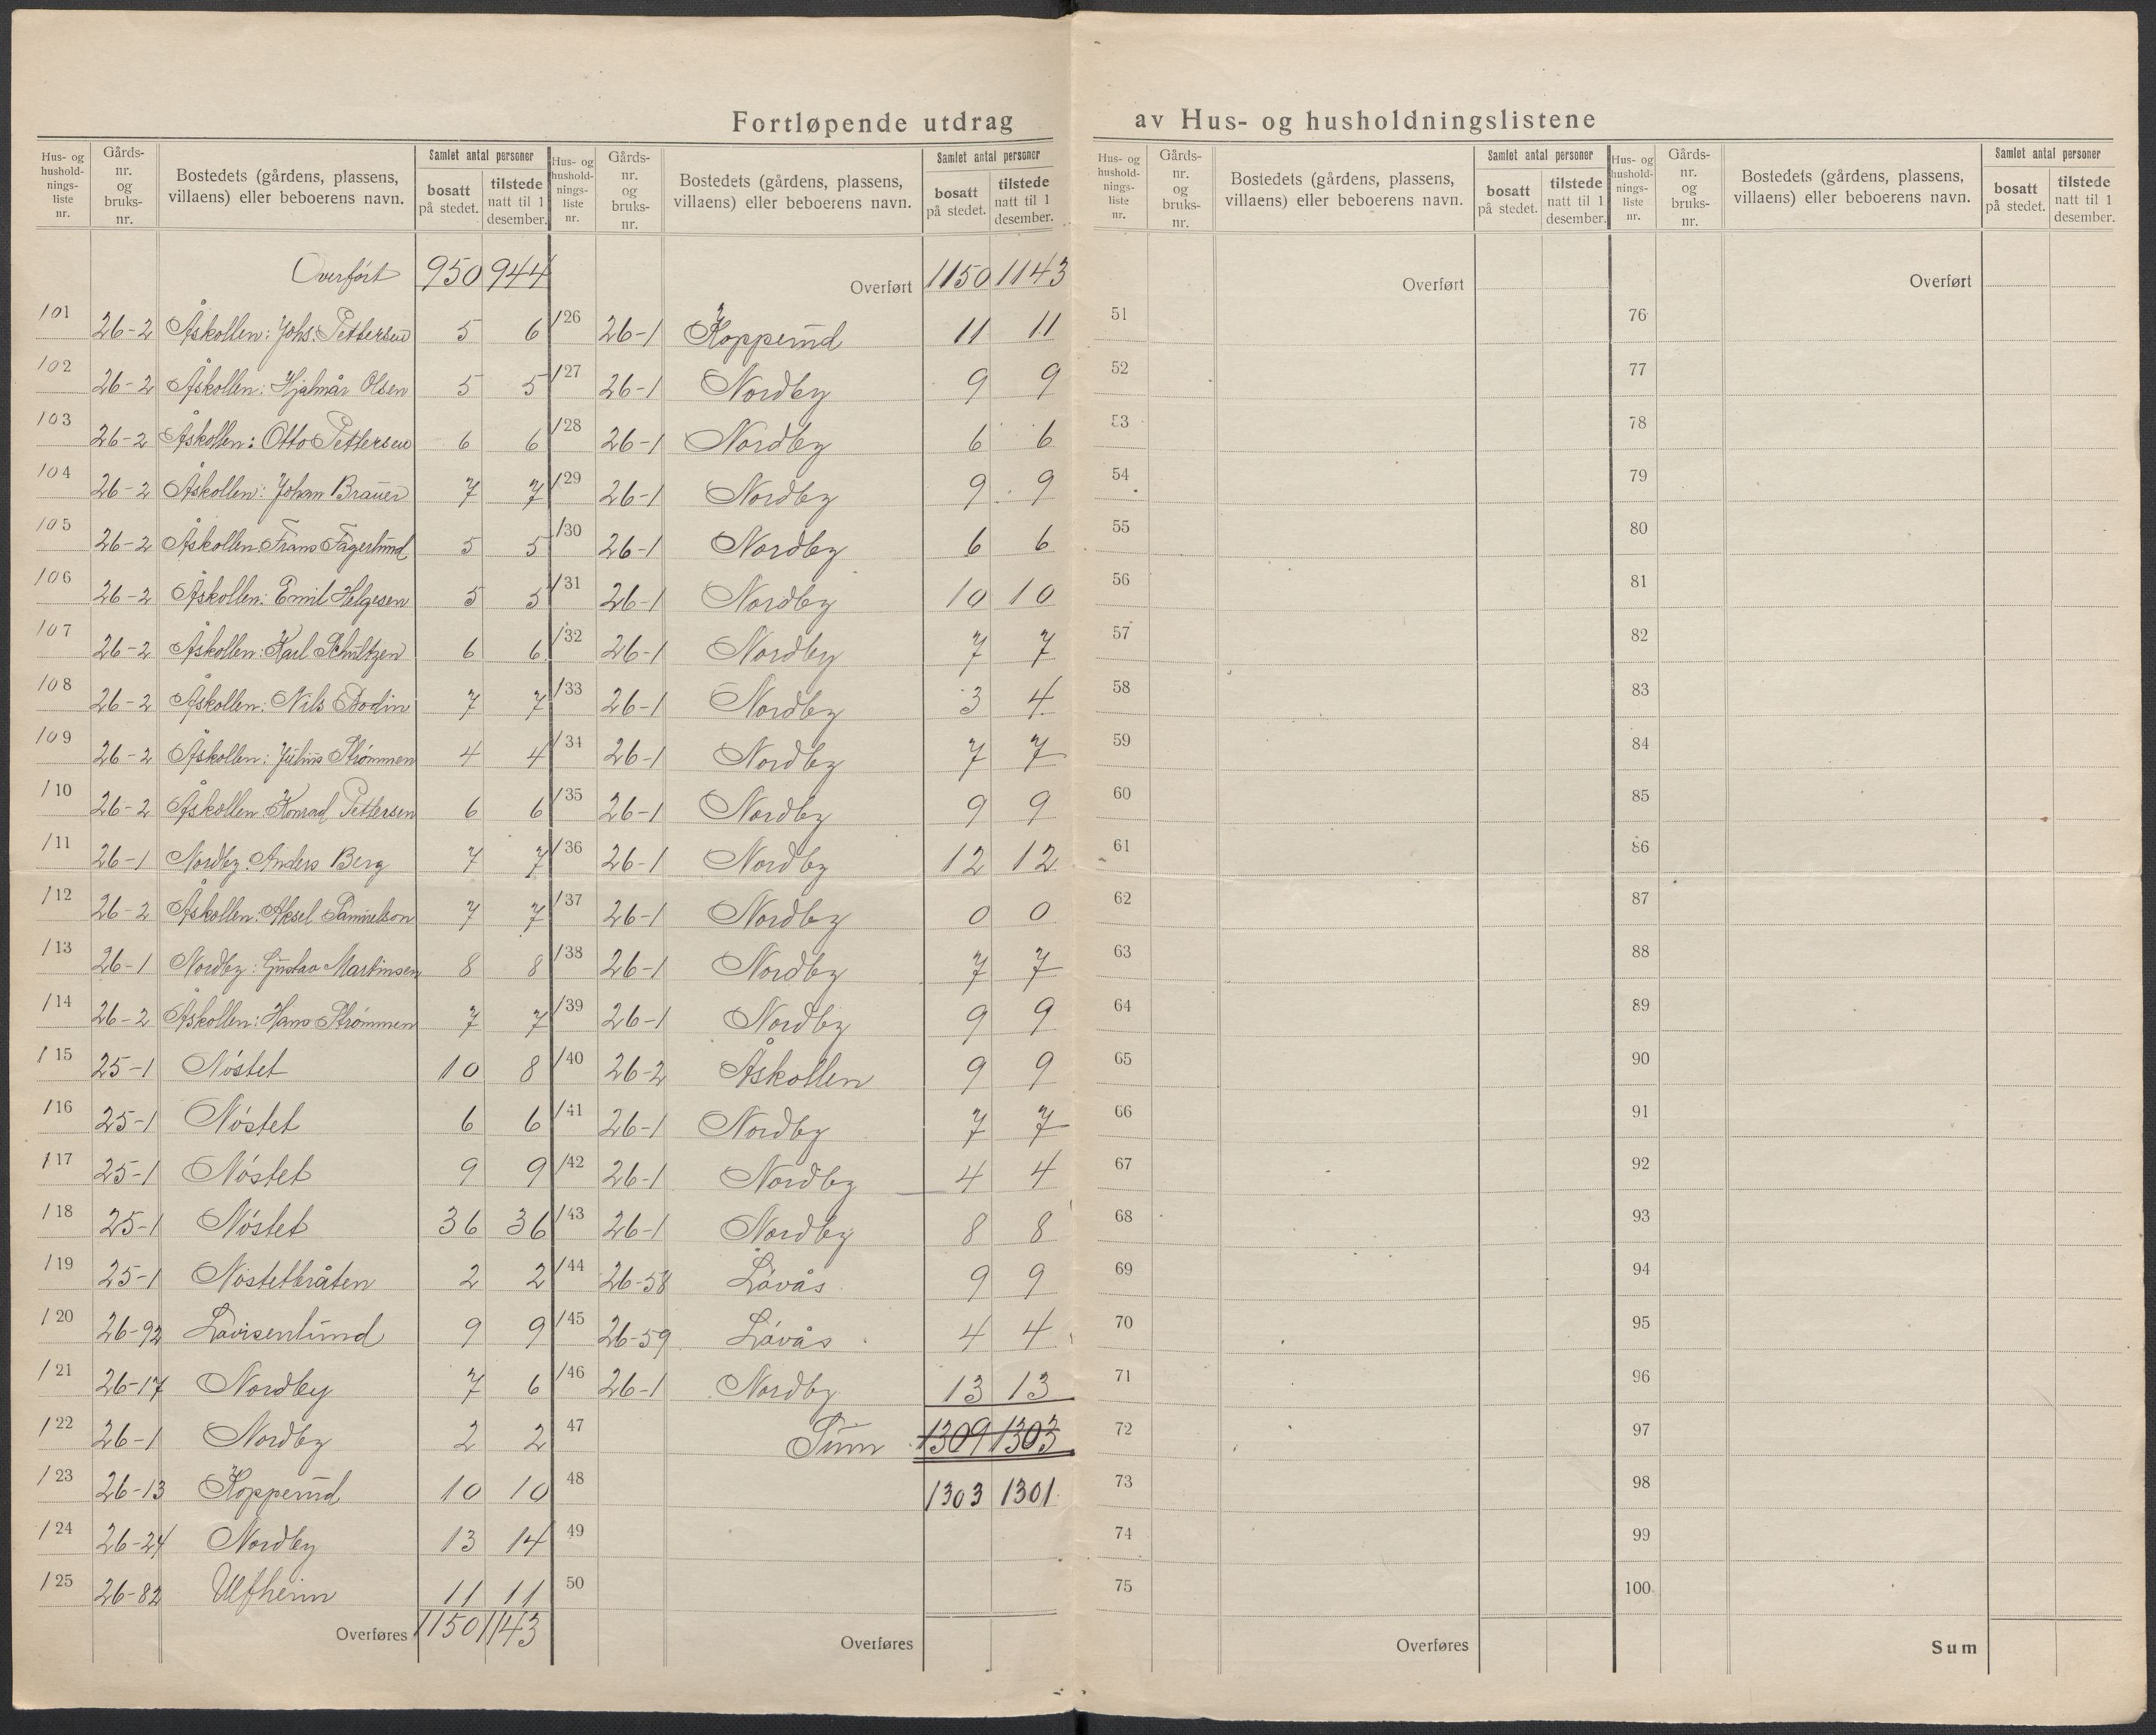 Fortløpende utdrag av Hus- og husholdningslistene
Hus- og hushold-nings-liste nr. Gårds-nr. og bruks-nr. Bostedets (gårdens, plassens, villaens) eller beboerens navn. Samlet antal personer bosatt på stedet. tilstede natt til 1 desember.
Overført 950 944
101 26-2 Åskollen: Johs. Pettersen 5 6
102 26-2 Åskollen: Hjalmar Olsen 5 5
103 26-2 Åskollen: Otto Pettersen 6 6
104 26-2 Åskollen: Johan Brauer 7 7
105 26-2 Åskollen: Frans Fagerlund 5 5
106 26-2 Åskollen: Emil Helgesen 5 5
107 26-2 Åskollen: Karl Schultzen 6 6
108 26-2 Åskollen: Nils Bodin 7 7
109 26-2 Åskollen: Julius Strømmen 4 4
110 26-2 Åskollen: Konrad Pettersen 6 6
111 26-1 Nordby: Anders Berg 7 7
112 26-2 Åskollen: Aksel Samuelson 7 7
113 26-1 Nordby: Gustav Martinsen 8 8
114 26-2 Åskollen: Hans Strømmen 7 7
115 25-1 Nøstet 10 8
116 25-1 Nøstet 6 6
117 25-1 Nøstet 9 9
118 25-1 Nøstet 36 36
119 25-1 Nøstetbråten 2 2
120 26-92 Lovisenlund 9 9
121 26-17 Nordby 7 6
122 26-1 Nordby 2 2
123 26-13 Kopperud 10 10
124 26-24 Nordby 13 14
125 26-82 Ulfheim 11 11
Overføres 1150 1143
Hus- og hushold-nings-liste nr. Gårds-nr. og bruks-nr. Bostedets (gårdens, plassens, villaens) eller beboerens navn. Samlet antal personer bosatt på stedet. tilstede natt til 1 desember.
Overført 1150 1143
126 26-1 Kopperud 11 11
127 26-1 Nordby 9 9
128 26-1 Nordby 6 6
129 26-1 Nordby 9 9
130 26-1 Nordby 6 6
131 26-1 Nordby 10 10
132 26-1 Nordby 7 7
133 26-1 Nordby 3 4
134 26-1 Nordby 7 7
135 26-1 Nordby 9 9
136 26-1 Nordby 12 12
137 26-1 Nordby 0 0
138 26-1 Nordby 7 7
139 26-1 Nordby 9 9
140 26-2 Åskollen 9 9
141 26-1 Nordby 7 7
142 26-1 Nordby 4 4
143 26-1 Nordby 8 8
144 26-58 Løvås 9 9
145 26-59 Løvås 4 4
146 26-1 Nordby 13 13
47 Sum 1309 1303
48 1303 1301
49
50
Overføres
Hus- og hushold-nings-liste nr. Gårds-nr. og bruks-nr. Bostedets (gårdens, plassens, villaens) eller beboerens navn. Samlet antal personer bosatt på stedet. tilstede natt til 1 desember.
Overført
51
52
53
54
55
56
57
58
59
60
61
62
63
64
65
66
67
68
69
70
71
72
73
74
75
Overføres
Hus- og hushold-nings-liste nr. Gårds-nr. og bruks-nr. Bostedets (gårdens, plassens, villaens) eller beboerens navn. Samlet antal personer bosatt på stedet. tilstede natt til 1 desember.
Overført
76
77
78
79
80
81
82
83
84
85
86
87
88
89
90
91
92
93
94
95
96
97
98
99
100
Sum